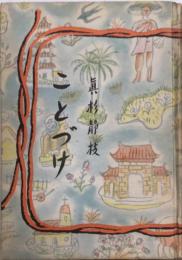 ことづけ
眞杉靜枝